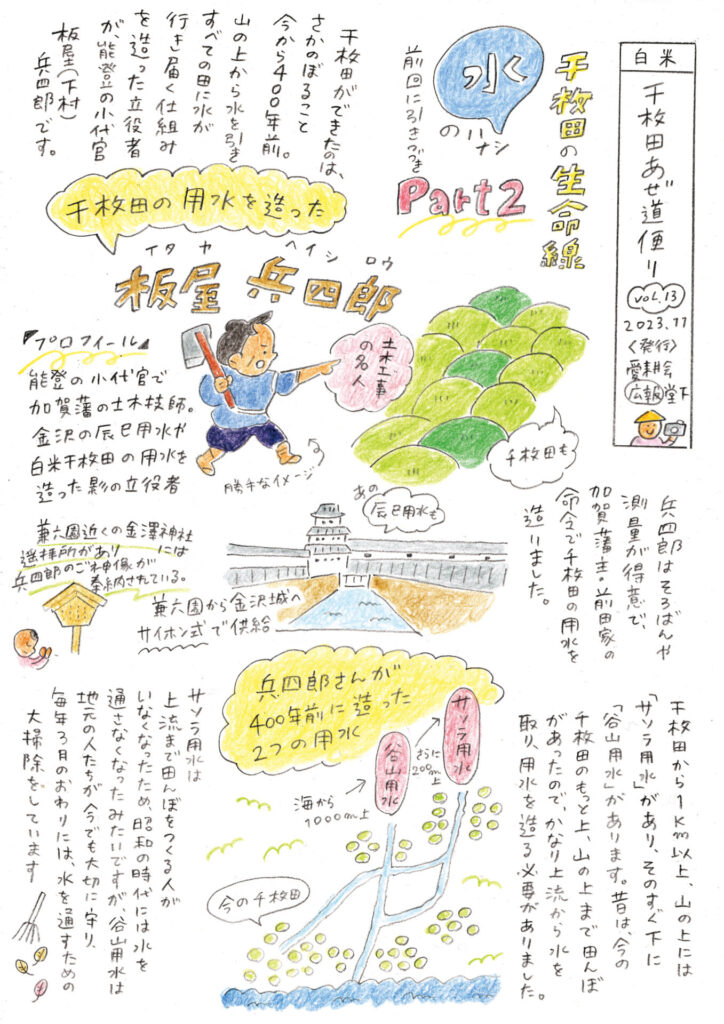 白米
千枚田あぜ道便り
vol.13
2023.11
〈発行〉
愛耕会
広報堂下
千枚田の生命線
水
のハナシ
前回に引きつづき
Part2
千枚田ができたのは、
さかのぼること
今から400年前。
山の上から水を引き
すべての田に水が
行き届く仕組み
を造った立役者
が、能登の小代官
板屋(下村)
兵四郎です。
千枚田の用水を造った
イタヤ ヘイシロウ
板屋 兵四郎
『プロフィール』
能登の小代官で
加賀藩の土木技師。
金沢の辰巳用水や
白米千枚田の用水を
造った影の立役者
土木工事
の名人
勝手なイメージ
千枚田も
あの
辰巳用水も
兼六園近くの金澤神社
には
遥拝所があり
兵四郎のご神像が
奉納されている。
兼六園から金沢城へ
サイホン式で供給
兵四郎はそろばんや
測量が得意で、
加賀藩主・前田家の
命令で千枚田の用水を
造りました。
兵四郎さんが
400年前に造った
2つの用水
サソラ用水
谷山用水
さらに
200m上
海から
1000m上
今の千枚田
千枚田から1km以上、山の上には
「サソラ用水」があり、そのすぐ下に
「谷山用水」があります。昔は、今の
千枚田のもっと上、山の上まで田んぼ
があったので、かなり上流から水を
取り、用水を造る必要がありました。
サソラ用水は
上流まで田んぼをつくる人が
いなくなったため、昭和の時代には水を
通さなくなったみたいですが、谷山用水は
地元の人たちが今でも大切に守り、
毎年3月のおわりには、水を通すための
大掃除をしています